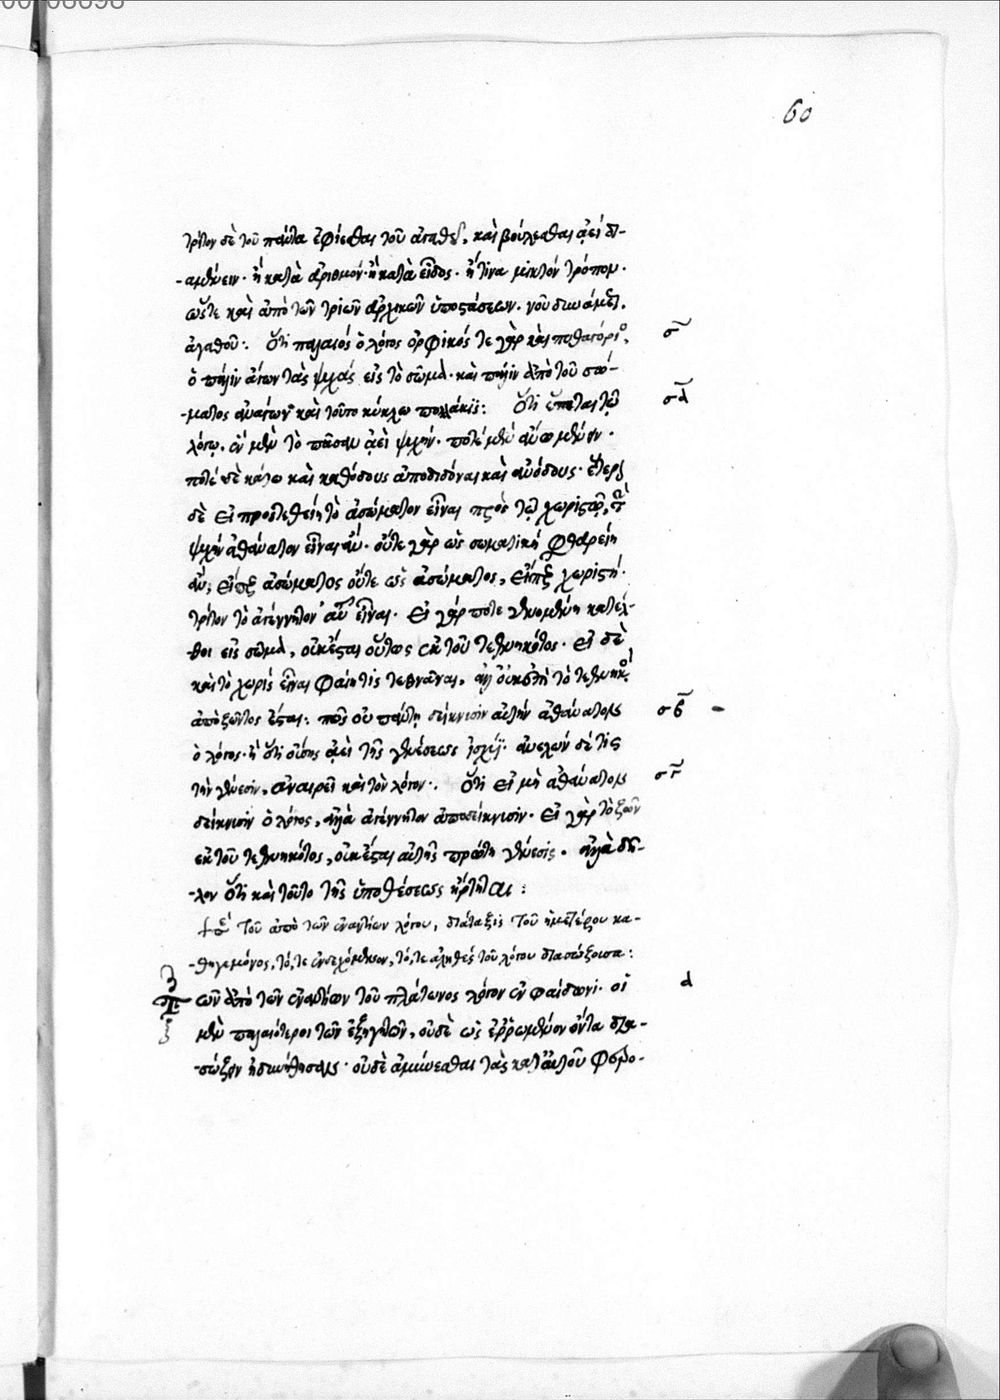 60
τρίτον δὲ τοῦ πάντα ἐφίεσθαι τοῦ ἀγαθοῦ, καὶ βούλεσθαι ἀεὶ δι-
-αμένειν· ἢ κατὰ ἀριθμόν· ἢ κατὰ εἶδος· ἤ τινα μικτὸν τρόπον·
ὥστε καὶ ἀπὸ τῶν τριῶν ἀρχικῶν ὑποστάσεων· νοῦ δυνάμεως.
ἀγαθοῦ: Ὅτι παλαιὸς ὁ λόγος ὀρφικός τε γὰρ καὶ πυθαγόριος, σ
ὁ πάλιν ἄγων τὰς ψυχὰς εἰς τὸ σῶμα· καὶ πάλιν ἀπὸ τοῦ σώ-
-ματος ἀνάγων· καὶ τοῦτο κύκλω πολλάκις: Ὅτι ἕπεται τῷ σα
λόγῳ. ἐν μὲν τὸ πᾶσαν ἀεὶ ψυχήν· ποτὲ μὲν ἄνω μένειν·
ποτὲ δὲ κάτω καὶ καθόδους ἀποδιδόναι καὶ ἀνόδους· ἕτερον
δὲ εἰ προστεθείη τὸ ἀσώματον εἶναι πρὸς τῷ χωριστῷ, τὸ
ψυχὴν ἀθάνατον εἶναι ἄν· οὔτε γὰρ ὡς σωματικὴ φθαρείη
ἄν, εἴπερ ἀσώματος οὔτε ὡς ἀσώματος, εἴπερ χωριστή·
τρίτον τὸ ἀγέννητον ἂν εἶναι· εἰ γάρ ποτε γενομένη κατέλ-
-θοι εἰς σῶμα, οὐκ ἔσται οὕτως ἐκ τοῦ τεθνηκότος· εἰ δὲ
καὶ τὸ χωρὶς εἶναι φαίη τις τεθνάναι, ἀλλ' οὐκέτι τὸ τεθνηκὸς
ἀπὸ ζῶντος ἔσται: πῶς οὐ πάντῃ δείκνυσιν αὐτὴν ἀθάνατον σβ
ὁ λόγος· ἢ ὅτι οὔσης ἀεὶ τῆς γενέσεως ἰσχύει· ἀνελὼν δέ τις
τὴν γένεσιν, ἀναιρεῖ καὶ τὸν λόγον·. Ὅτι εἰ μὴ ἀθάνατον σγ
δείκνυσιν ὁ λόγος, ἀλλὰ ἀγέννητον ἀποδείκνυσιν· εἰ γὰρ τὸ ζῶν
ἐκ τοῦ τεθνηκότος, οὐκ ἔσται αὐτῆς πρώτη γένεσις· ἀλλὰ δῆ-
-λον ὅτι καὶ τοῦτο τῆς ὑποθέσεως ἤρτηται:
τοῦ ἀπὸ τῶν ἐναντίων λόγου, διάταξις τοῦ ἡμετέρου κα-
-θηγεμόνος, τό, τε ἐνδεχόμενον, τό, τε ἀληθὲς τοῦ λόγου διασώζουσα:
ὧν ἀπὸ τῶν ἐναντίων τοῦ πλάτωνος λόγον ἐν φαίδωνι· οἱ α
μὲν παλαιότεροι τῶν ἐξηγητῶν, οὐδὲ ὡς ἐρρωμένον ὄντα δια-
-σώζειν ἠδυνήθησαν· οὐδὲ ἀμύνεσθαι τὰς κατ' αὐτοῦ φερο-